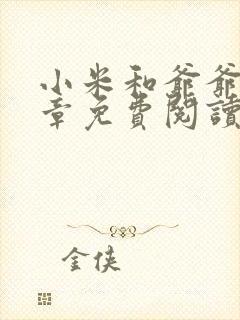 小米和爺爺
章免費閱讀
金俠